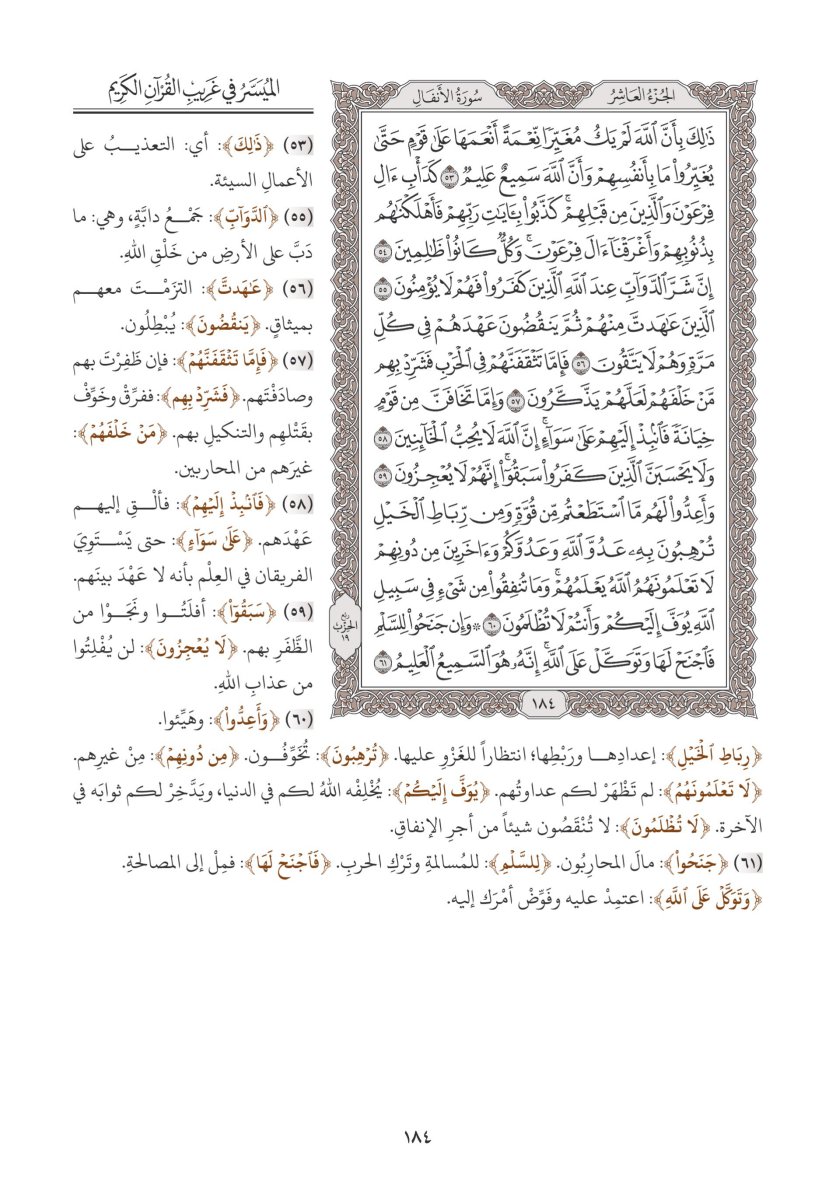 الميسر في غريب القرآن الكريم
الجزء العاشر
سورة الأنفال
ذَٰلِكَ بِأَنَّ ٱللَّهَ لَمۡ يَكُ مُغَيِّرٗا نِّعۡمَةً أَنۡعَمَهَا عَلَىٰ قَوۡمٍ حَتَّىٰ
يُغَيِّرُواْ مَا بِأَنفُسِهِمۡ وَأَنَّ ٱللَّهَ سَمِيعٌ عَلِيمٞ ٥٣ كَدَأۡبِ ءَالِ
فِرۡعَوۡنَ وَٱلَّذِينَ مِن قَبۡلِهِمۡۚ كَذَّبُواْ بِـَٔايَٰتِ رَبِّهِمۡ فَأَهۡلَكۡنَٰهُم
بِذُنُوبِهِمۡ وَأَغۡرَقۡنَآ ءَالَ فِرۡعَوۡنَۚ وَكُلّٞ كَانُواْ ظَٰلِمِينَ ٥٤
إِنَّ شَرَّ ٱلدَّوَآبِّ عِندَ ٱللَّهِ ٱلَّذِينَ كَفَرُواْ فَهُمۡ لَا يُؤۡمِنُونَ ٥٥
ٱلَّذِينَ عَٰهَدتَّ مِنۡهُمۡ ثُمَّ يَنقُضُونَ عَهۡدَهُمۡ فِي كُلِّ
مَرَّةٖ وَهُمۡ لَا يَتَّقُونَ ٥٦ فَإِمَّا تَثۡقَفَنَّهُمۡ فِي ٱلۡحَرۡبِ فَشَرِّدۡ بِهِم
مَّنۡ خَلۡفَهُمۡ لَعَلَّهُمۡ يَذَّكَّرُونَ ٥٧ وَإِمَّا تَخَافَنَّ مِن قَوۡمٍ
خِيَانَةٗ فَٱنۢبِذۡ إِلَيۡهِمۡ عَلَىٰ سَوَآءٍۚ إِنَّ ٱللَّهَ لَا يُحِبُّ ٱلۡخَآئِنِينَ ٥٨
وَلَا يَحۡسَبَنَّ ٱلَّذِينَ كَفَرُواْ سَبَقُوٓاْۚ إِنَّهُمۡ لَا يُعۡجِزُونَ ٥٩
وَأَعِدُّواْ لَهُم مَّا ٱسۡتَطَعۡتُم مِّن قُوَّةٖ وَمِن رِّبَاطِ ٱلۡخَيۡلِ
تُرۡهِبُونَ بِهِۦ عَدُوَّ ٱللَّهِ وَعَدُوَّكُمۡ وَءَاخَرِينَ مِن دُونِهِمۡ
لَا تَعۡلَمُونَهُمُ ٱللَّهُ يَعۡلَمُهُمۡۚ وَمَا تُنفِقُواْ مِن شَيۡءٖ فِي سَبِيلِ
ٱللَّهِ يُوَفَّ إِلَيۡكُمۡ وَأَنتُمۡ لَا تُظۡلَمُونَ ٦٠ ۞ وَإِن جَنَحُواْ لِلسَّلۡمِ
فَٱجۡنَحۡ لَهَا وَتَوَكَّلۡ عَلَى ٱللَّهِۚ إِنَّهُۥ هُوَ ٱلسَّمِيعُ ٱلۡعَلِيمُ ٦١
ربع
الحزب
١٩
١٨٤
(٥٣) ﴿ذَٰلِكَ﴾: أي: التعذيبُ على
الأعمالِ السيئة.
(٥٥) ﴿ٱلدَّوَآبِّ﴾: جَمْعُ دابَّةٍ، وهي: ما
دَبَّ على الأرضِ من خَلْقِ اللهِ.
(٥٦) ﴿عَٰهَدتَّ﴾: التزمْتَ معهم
بميثاقٍ. ﴿يَنقُضُونَ﴾: يُبْطِلُون.
(٥٧) ﴿فَإِمَّا تَثۡقَفَنَّهُمۡ﴾: فإن ظَفِرْتَ بهم
وصادَفْتَهم. ﴿فَشَرِّدۡ بِهِم﴾: ففرِّقْ وخَوِّفْ
بقَتْلِهم والتنكيلِ بهم. ﴿مَنۡ خَلۡفَهُمۡ﴾:
غيرَهم من المحاربين.
(٥٨) ﴿فَٱنۢبِذۡ إِلَيۡهِمۡ﴾: فألْقِ إليهم
عَهْدَهم. ﴿عَلَىٰ سَوَآءٍ﴾: حتى يَسْتَوِيَ
الفريقان في العِلْم بأنه لا عَهْدَ بينَهم.
(٥٩) ﴿سَبَقُوٓاْ﴾: أفلَتُوا ونَجَوْا من
الظَّفَرِ بهم. ﴿لَا يُعۡجِزُونَ﴾: لن يُفْلِتُوا
من عذابِ اللهِ.
(٦٠) ﴿وَأَعِدُّواْ﴾: وهَيِّئوا.
﴿رِبَاطِ ٱلۡخَيۡلِ﴾: إعدادِها ورَبْطِها؛ انتظاراً للغَزْوِ عليها. ﴿تُرۡهِبُونَ﴾: تُخَوِّفُون. ﴿مِن دُونِهِمۡ﴾: مِنْ غيرِهم.
﴿لَا تَعۡلَمُونَهُمُ﴾: لم تَظْهَرْ لكم عداوتُهم. ﴿يُوَفَّ إِلَيۡكُمۡ﴾: يُخْلِفْه اللهُ لكم في الدنيا، ويَدَّخِرْ لكم ثوابَه في
الآخرة. ﴿لَا تُظۡلَمُونَ﴾: لا تُنْقَصُون شيئاً من أجرِ الإنفاقِ.
(٦١) ﴿جَنَحُواْ﴾: مالَ المحاربُون. ﴿لِلسَّلۡمِ﴾: للمُسالمةِ وتَرْكِ الحربِ. ﴿فَٱجۡنَحۡ لَهَا﴾: فمِلْ إلى المصالحةِ.
﴿وَتَوَكَّلۡ عَلَى ٱللَّهِ﴾: اعتمِدْ عليه وفَوِّضْ أمْرَك إليه.
١٨٤